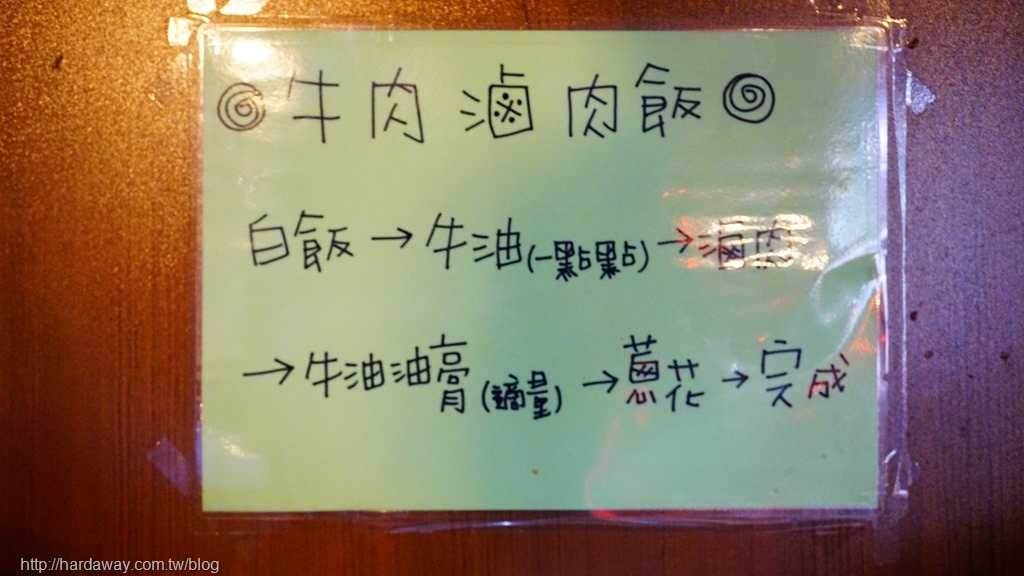 ◎牛肉滷肉飯◎
白飯→牛油(一點點)→滷肉
→牛油油膏(適量)→蔥花→完成
http://hardaway.com.tw/blog